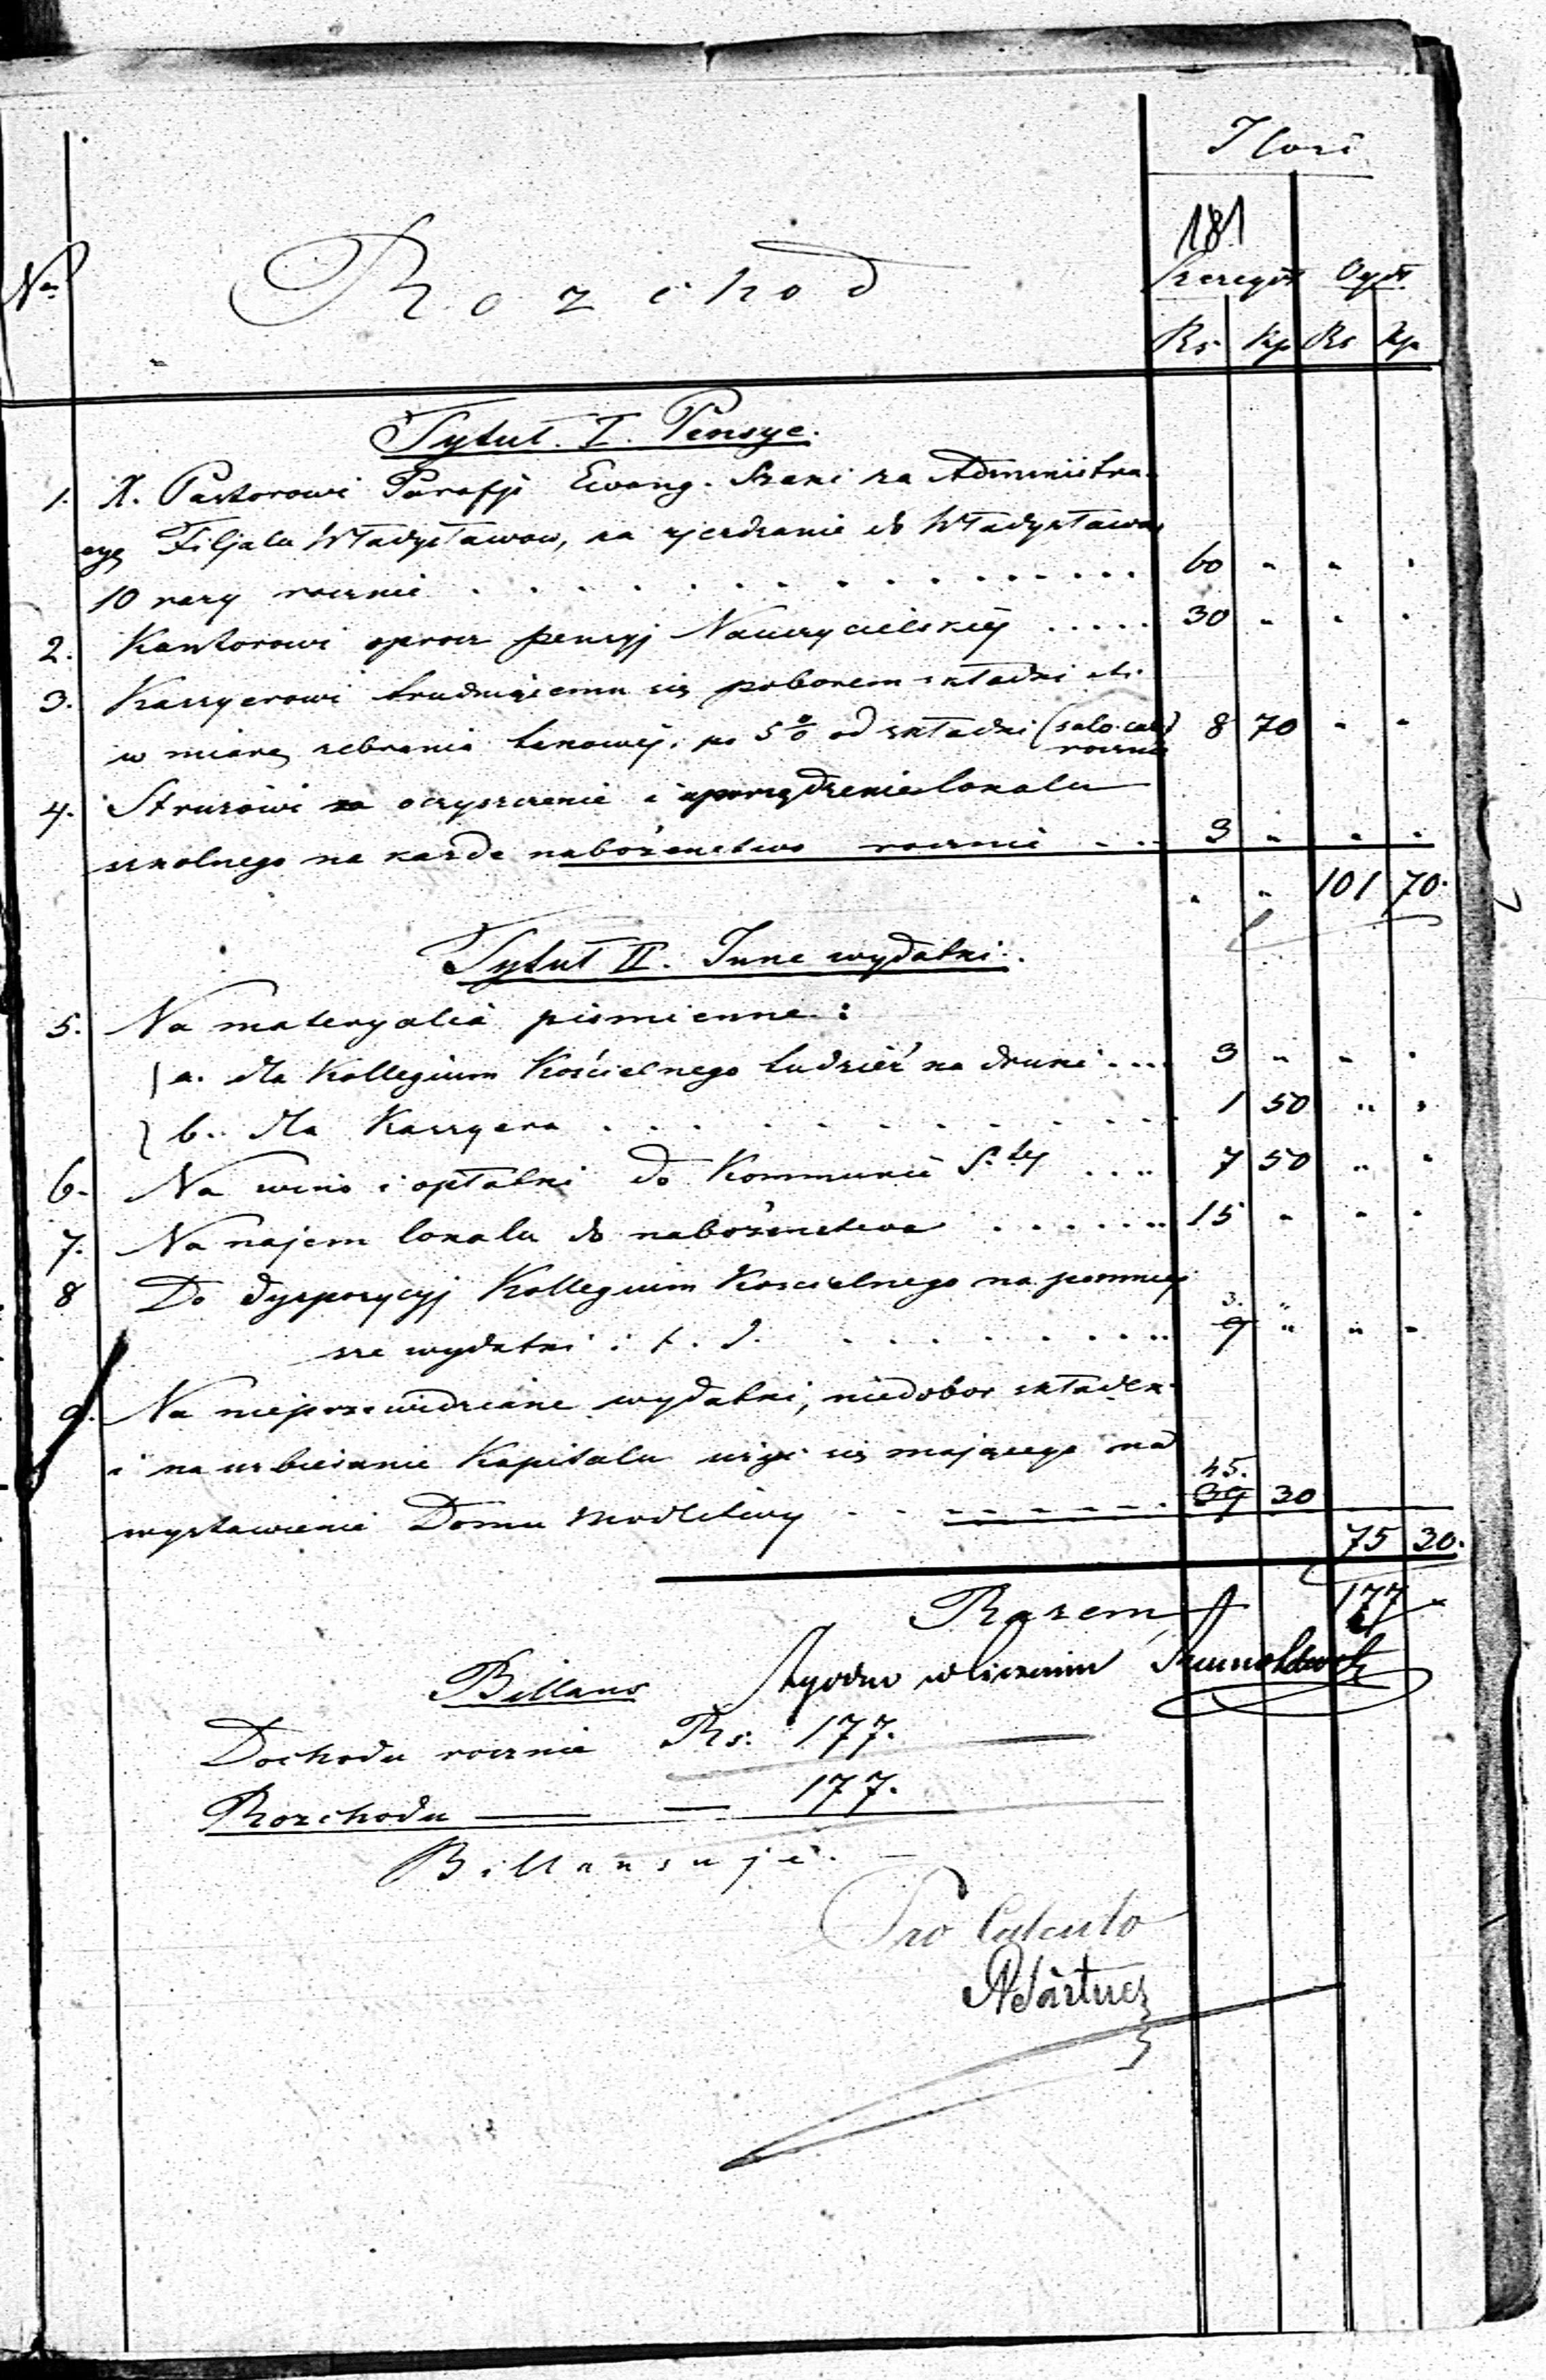 Ilość
181
No
Rozchod
Szczegół Ogół
Rs Kp Rs Kp
Tytuł. I. Pensye.
1. X. Pastorowi Parafji Ewang. Szaki za Administra-
cyę Filjału Władysławow, za zjezdzanie do Władysławowa
10 razy rocznie 60 " " "
2. Kantorowi oprocz pensyj Nauczycielskiej 30 " " "
3. Kassyerowi trudniącemu się poborem składki et.
w miarę zebrania takowej, po 5% od składki 8 70 " "
rocznie
4. Stróżowi za oczyszczenie i uporządzenie lokalu
szkolnego na każde nabożenstwo rocznie 3 " " "
" " 101 70.
Tytuł II. Inne wydatki.
5. Na materyalia piśmienne:
a. dla Kollegium Kościelnego tudzież na druki 3 " " "
b. dla Kassyera 1 50 " "
6. Na wino i opłatki do Kommunii S.tej 7 50 " "
7. Na najem lokalu do nabożenstwa 15 " " "
8 Do dyspozycyj Kollegium Koscielnego na pomniej
3. "
sze wydatki i t. d. 9 " " "
9. Na nieprzewidziane wydatki, niedobor składek
i na uzbieranie Kapitału użyć się mającego na
45.
wystawienie Domu Modlitwy 39 30
75 30.
Razem 177 "
Billans Zgodno w liczeniu
Dochodu rocznie Rs. 177.
Rozchodu — — 177.
Billansuje.
Pro Calculo